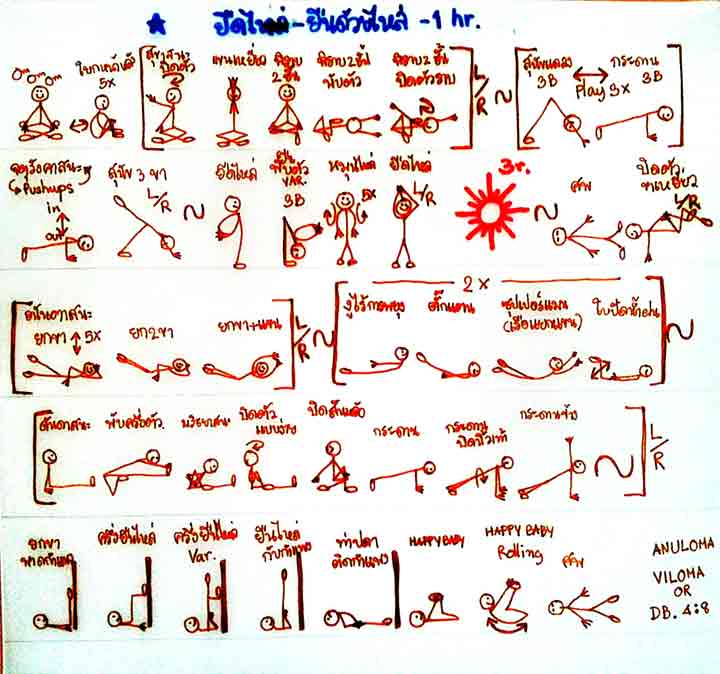 ยืดไหล่ - ยืนด้วยไหล่ - 1 hr.
Om Om Om
5x
สุขาสนะ
บิดตัว
แขนเหยี่ยว
พิราบ
2 ขั้น
พิราบ 2 ขั้น
พับตัว
พิราบ 2 ขั้น
บิดตัวราบ
L/R
สุนัขแลลง
3B
Play 3x
กระดาน
3B
จตุรังคาสนะ
Pushups
in
out
สุนัข 3 ขา
L/R
ยืดไหล่
ยืน
พับตัว
VAR.
3B
หมุนไหล่
5x
ยืดไหล่
L/R
3r.
ศพ
บิดตัว
ขาเหยี่ยว
L/R
อนันตาสนะ
ยกขา 5x
ยก 2 ขา
ยกขา+แขน
L/R
2x
งูไร้การพยุง
ตั๊กแตน
ซุปเปอร์แมน
(เรือแยกแขน)
ใบปัดน้ำฝน
ทัณฑาสนะ
พับครึ่งตัว
มริชยาสนะ
บิดตัว
แบบง่าย
กระดาน
กระดาน
กระดานข้าง
L/R
ยกขา
พาดกำแพง
ครึ่งยืนไหล่
ครึ่งยืนไหล่
Var.
ยืนไหล่
กับกำแพง
ท่าปลา
ติดกำแพง
HAPPY BABY
HAPPY BABY
Rolling
ศพ
ANULOMA
VILOMA
OR
DB. 4:8